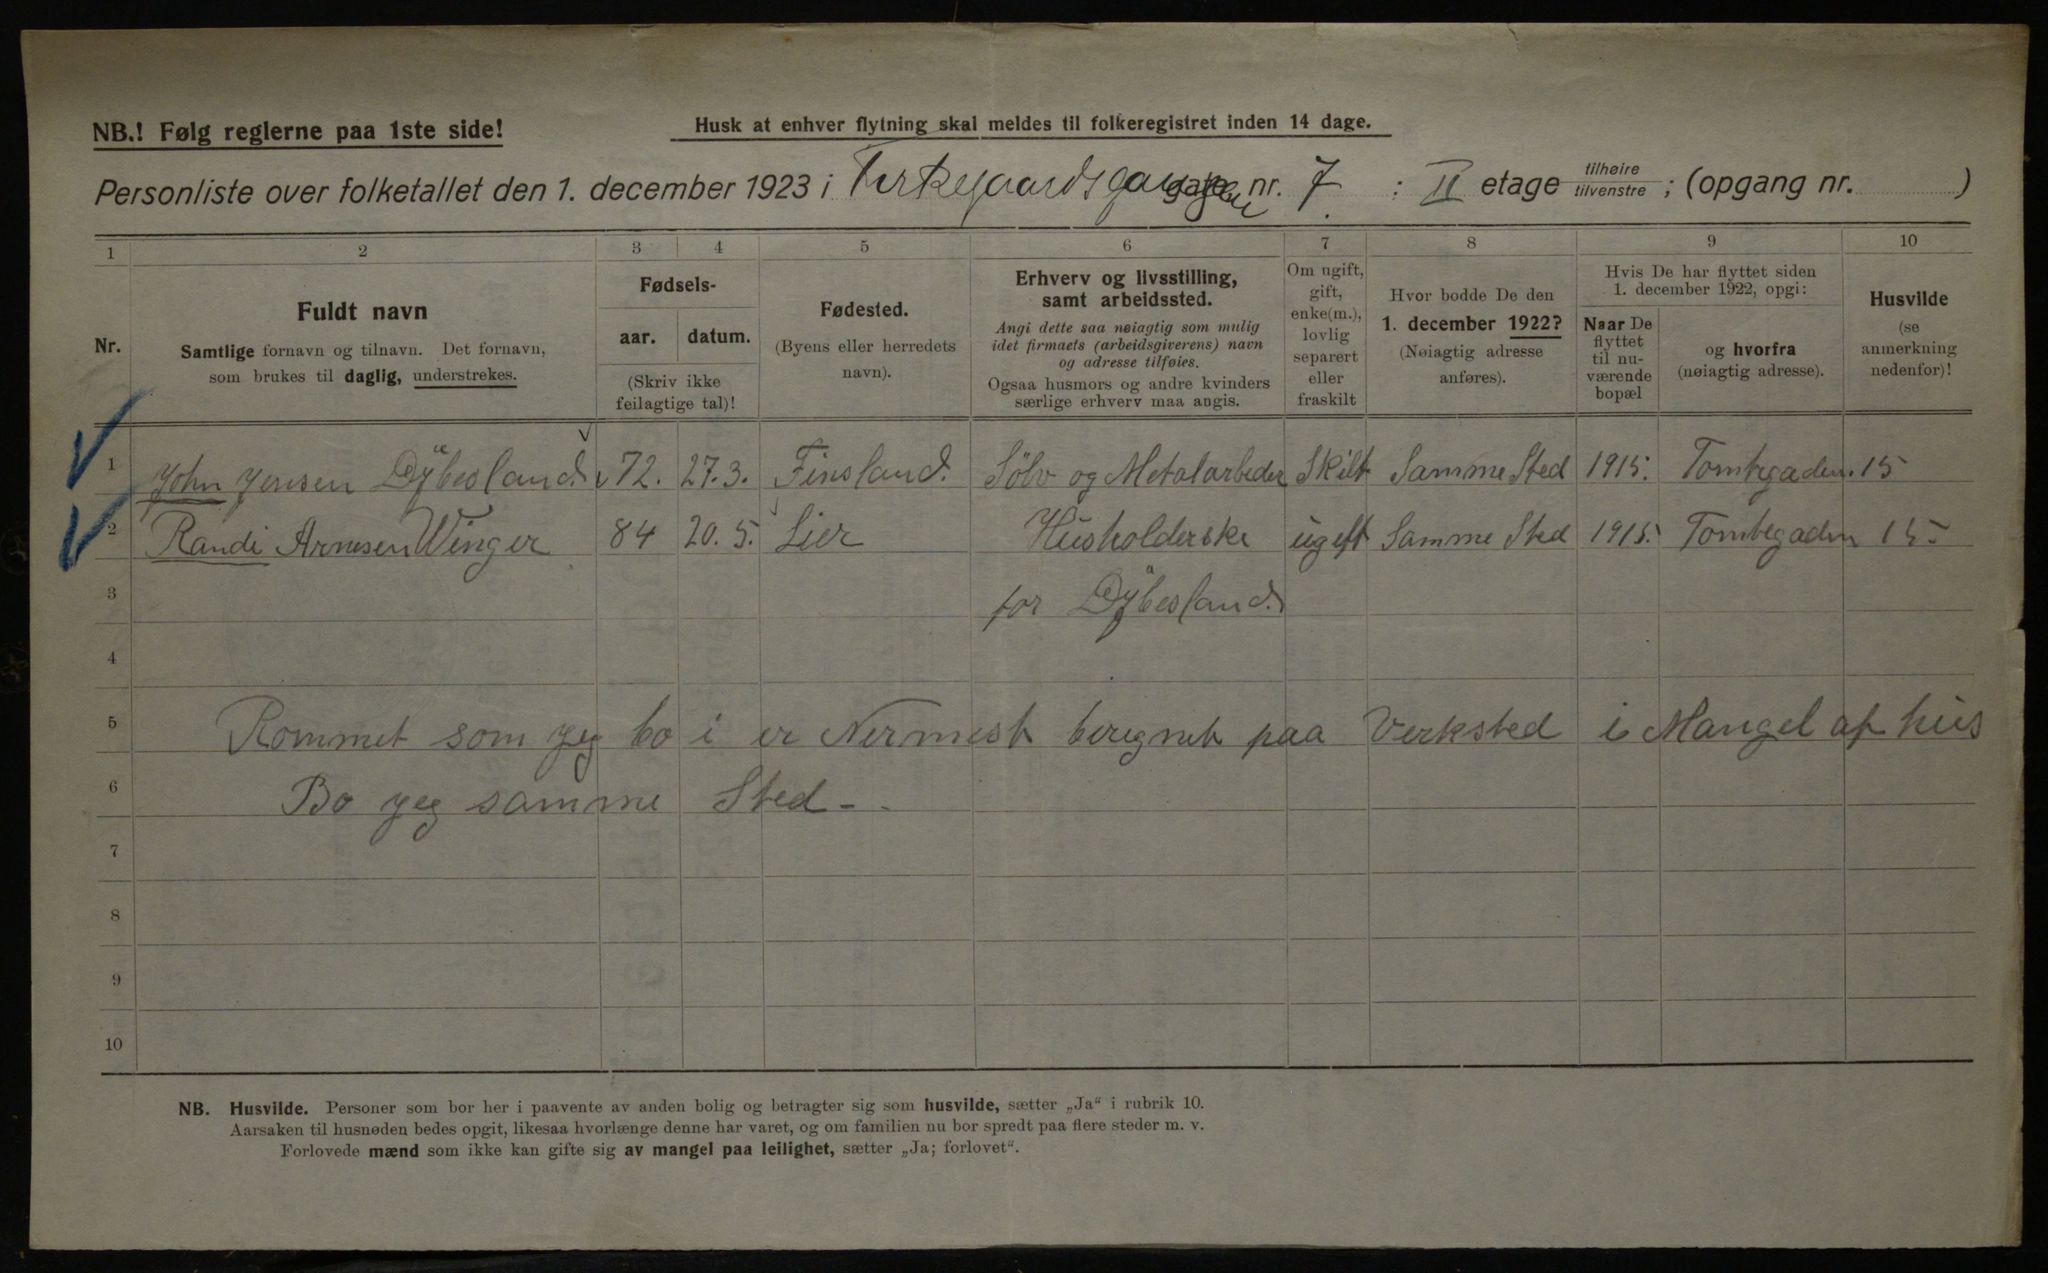 NB.! Følg reglerne paa 1ste side!
Husk at enhver flytning skal meldes til folkeregistret inden 14 dage.
Personliste over folketallet den 1. december 1923 i nr. 7 : II etage tilhøire tilvenstre ; (opgang nr. )
1 2 3 4 5 6 7 8 9 10
Nr.
Fuldt navn
Samtlige fornavn og tilnavn. Det fornavn,
som brukes til daglig, understrekes.
Fødsels-
aar. datum.
(Skriv ikke
feilagtige tal)!
Fødested.
(Byens eller herredets
navn).
Erhverv og livsstilling,
samt arbeidssted.
Angi dette saa nøiagtig som mulig
idet firmaets (arbeidsgiverens) navn
og adresse tilføies.
Ogsaa husmors og andre kvinders
særlige erhverv maa angis.
Om ugift,
gift,
enke(m.),
lovlig
separert
eller
fraskilt
Hvor bodde De den
1. december 1922?
(Nøiagtig adresse
anføres).
Hvis De har flyttet siden
1. december 1922, opgi:
Naar De
flyttet
til nu-
værende
bopæl
og hvorfra
(nøiagtig adresse).
Husvilde
(se
anmerkning
nedenfor)!
1 John Jensen Dÿbesland. 72. 27.3. Finsland. Sölv og Metalarbeder Skilt Samme Sted 1915. Tomtegaden. 15
2 Randi Arnesen Winger 84 20.5. Lier Husholderske ugift Samme Sted 1915. Tomtegaden 15
3 for Dÿbesland.
4
5 Rommet som jeg bo i er Nermest beregnet paa Verksted i Mangel af hus
6 Bo jeg samme Sted - -
7
8
9
10
NB. Husvilde. Personer som bor her i paavente av anden bolig og betragter sig som husvilde, sætter „Ja“ i rubrik 10.
Aarsaken til husnøden bedes opgit, likesaa hvorlænge denne har varet, og om familien nu bor spredt paa flere steder m. v.
Forlovede mænd som ikke kan gifte sig av mangel paa leilighet, sætter „Ja; forlovet“.